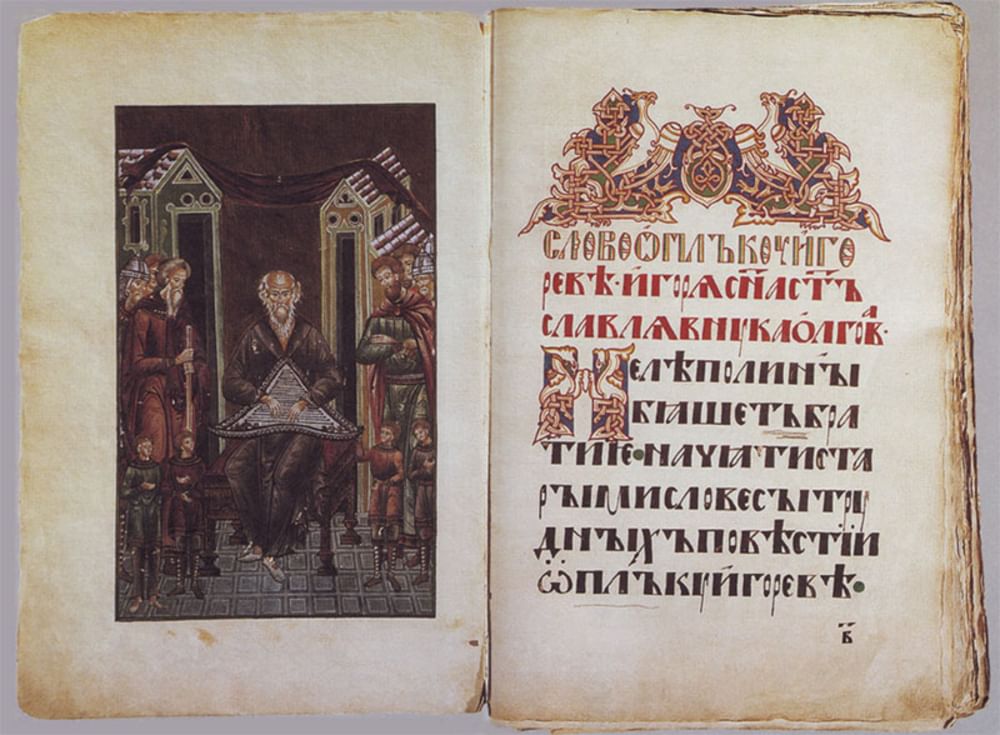 СЛОВОѠПЛЪКОУИГО
РЕВѢ·ИГОРѦСН҃АСТ҃Ъ
СЛАВЛѦВНꙋКАОЛГОВⷶ·
НЕЛѢПОЛИНЫ
БꙖШЕТЪБРА
ТИѤ•НАЧꙖТИСТА
РЪІМИСЛОВЕСЪІТРꙋ
ДНЪІХЪПОВѢСТІИ
ѠПЛЪКꙋИГОРЕВѢ•
в҃